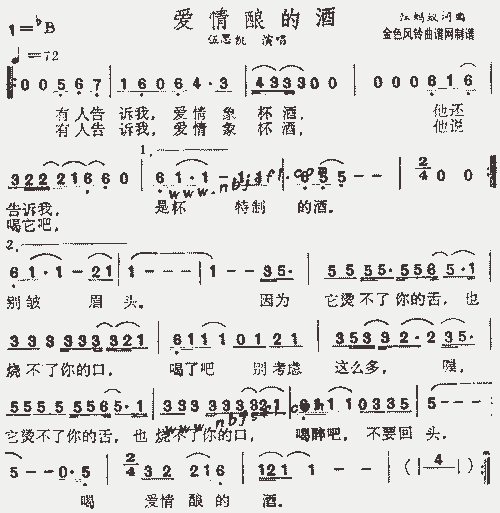 爱情酿的酒
1=♭B
词曲
♩=72
伍思凯 演唱
金色风铃曲谱网制谱
0 0 5 6 7 | 1 6 0 6 4· 5 | 4 3 3 3 0 0 | 0 0 0 6 1 6
有人告 诉我, 爱情象 杯酒, 他还
有人告 诉我, 爱情象 杯酒, 他说
1.
3 2 2 2 2 1 6 6 0 | 6 1·1- | 6 5 5 - - | 2/4 0 0
告诉我, 是杯 特制 的酒。
喝它吧,
2.
6 1·1 - 2 1 | 1 - - - | 1 - - 3 5· | 5 5 5 5· 5 5 6 5·1
别皱 眉 头。 因为 它烫不了你的舌, 也
3 3 3 3 3 3 3 3 2 1 | 6 1 1 1 0 1 2 1 | 3 5 3 3 2·2 3 5·
烧不了你的口, 喝了吧 别考虑 这么多, 嘿,
5 5 5 5 5 5 6 5·1 | 3 3 3 3 3 3 3 3 2 1 | 6 1 1 1 0 3 3 5 | 5 - - -
它烫不了你的舌, 也 烧不了你的口, 喝醉吧, 不要回 头,
5 - - 0·5 | 2/4 3 2 2 1 6 | 1 2 1 1 - - | ( | 4 | )
喝 爱情 酿的 酒。